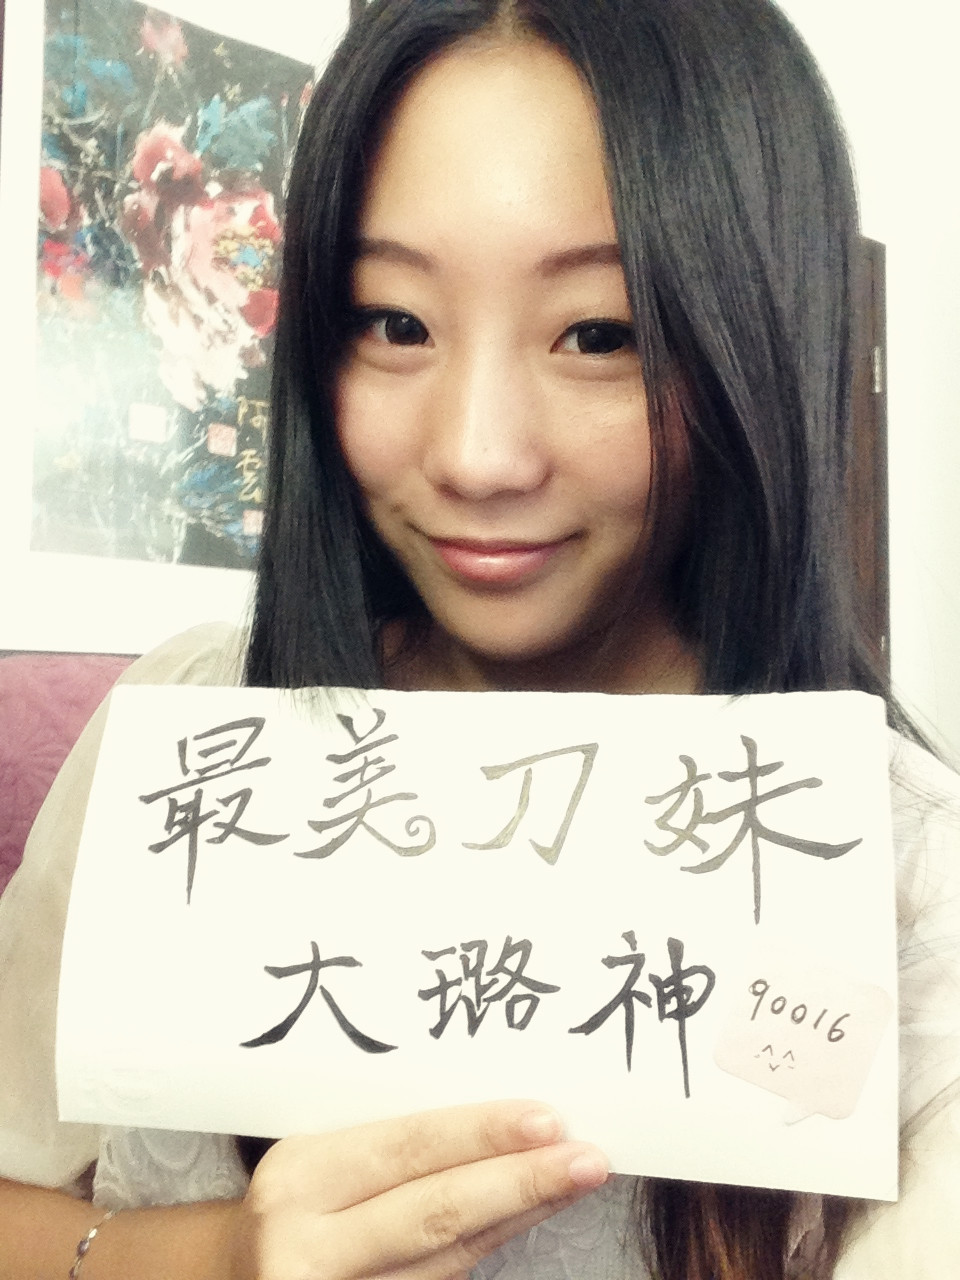 最美刀妹
大璐神
90016
阿雲